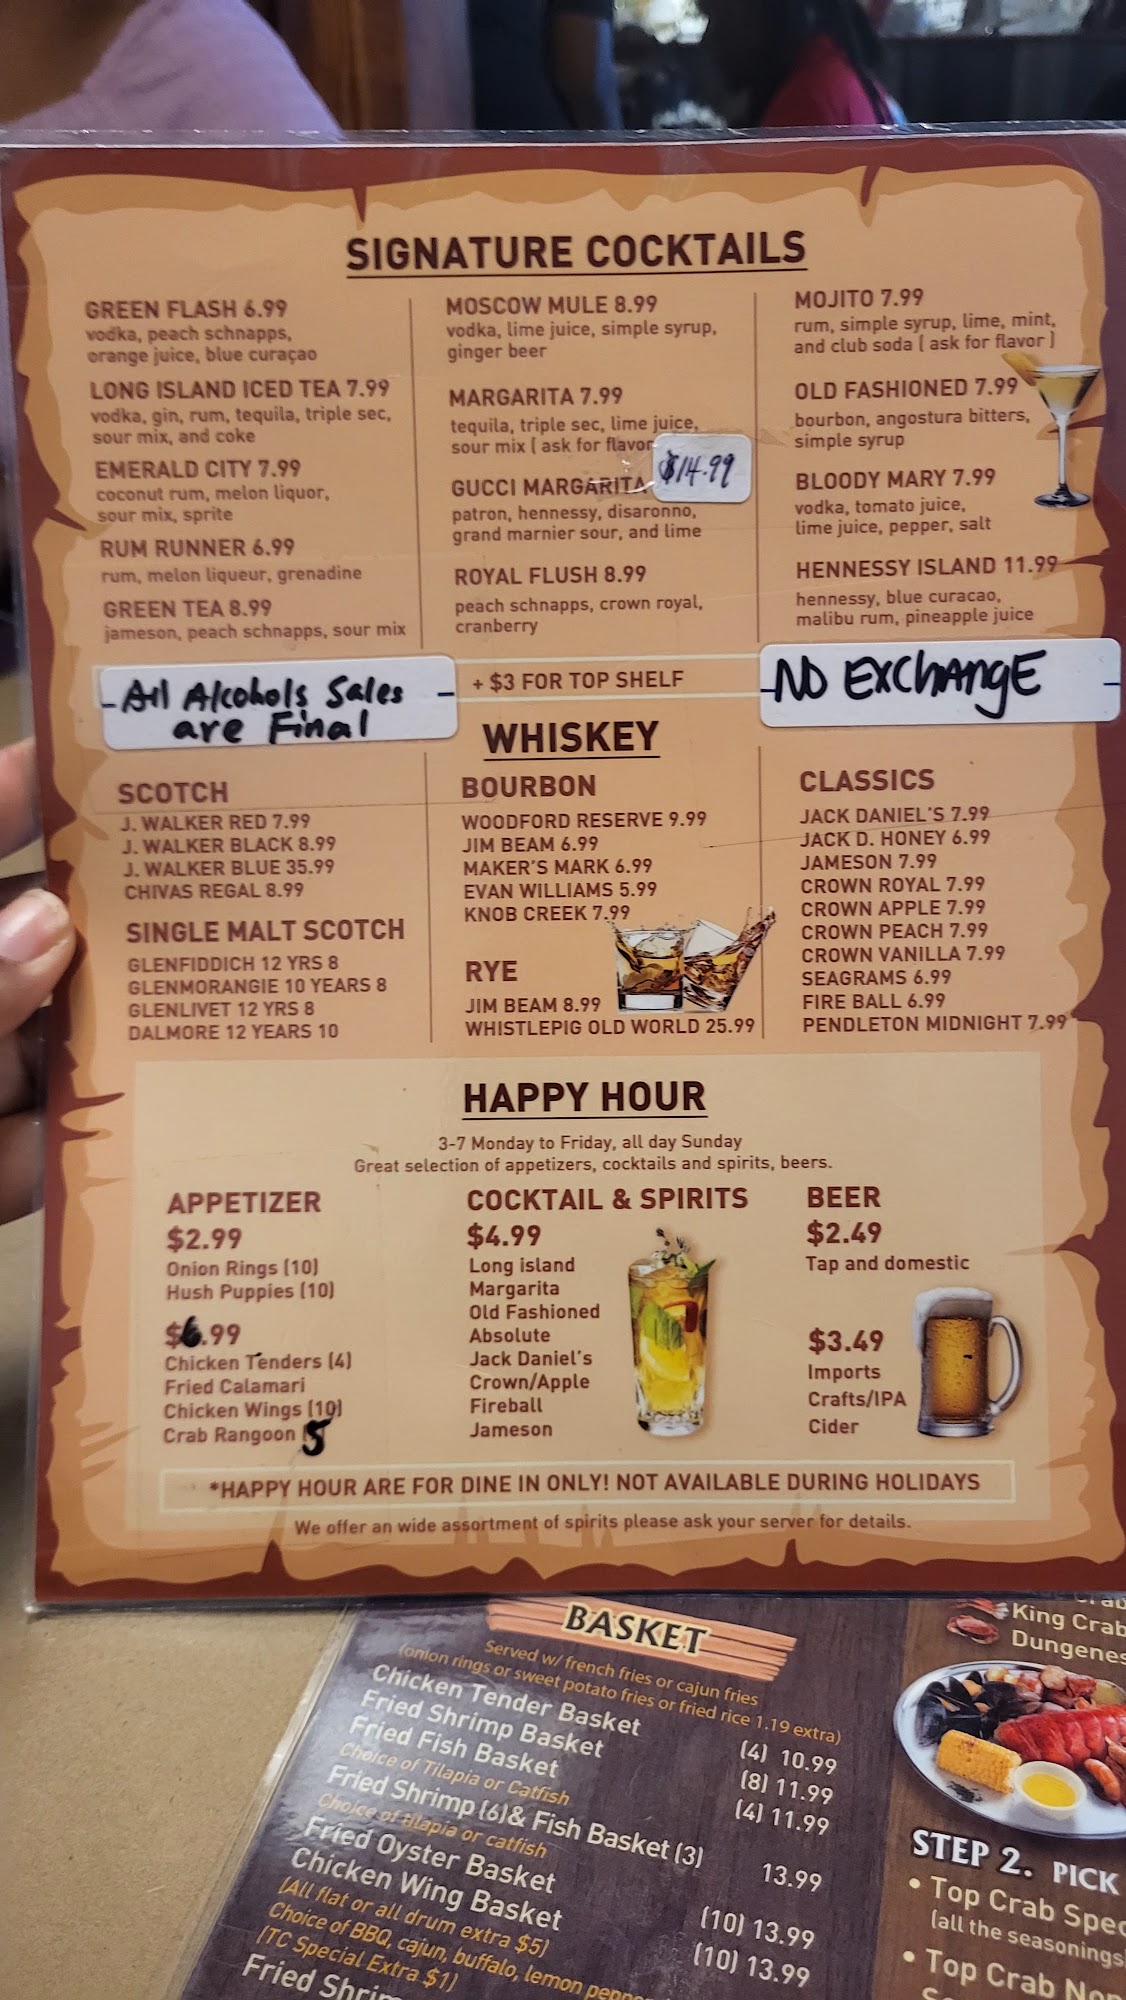 SIGNATURE COCKTAILS
GREEN FLASH 6.99
vodka, peach schnapps,
orange juice, blue curaçao
LONG ISLAND ICED TEA 7.99
vodka, gin, rum, tequila, triple sec,
sour mix, and coke
EMERALD CITY 7.99
coconut rum, melon liquor,
sour mix, sprite
RUM RUNNER 6.99
rum, melon liqueur, grenadine
GREEN TEA 8.99
jameson, peach schnapps, sour mix
MOSCOW MULE 8.99
vodka, lime juice, simple syrup,
ginger beer
MARGARITA 7.99
tequila, triple sec, lime juice,
sour mix ( ask for flavor
GUCCI MARGARITA $14.99
patron, hennessy, disaronno,
grand marnier sour, and lime
ROYAL FLUSH 8.99
peach schnapps, crown royal,
cranberry
MOJITO 7.99
rum, simple syrup, lime, mint,
and club soda ( ask for flavor )
OLD FASHIONED 7.99
bourbon, angostura bitters,
simple syrup
BLOODY MARY 7.99
vodka, tomato juice,
lime juice, pepper, salt
HENNESSY ISLAND 11.99
hennessy, blue curacao,
malibu rum, pineapple juice
- All Alcohols Sales -
are Final
+ $3 FOR TOP SHELF
- NO EXCHANGE -
WHISKEY
SCOTCH
J. WALKER RED 7.99
J. WALKER BLACK 8.99
J. WALKER BLUE 35.99
CHIVAS REGAL 8.99
SINGLE MALT SCOTCH
GLENFIDDICH 12 YRS 8
GLENMORANGIE 10 YEARS 8
GLENLIVET 12 YRS 8
DALMORE 12 YEARS 10
BOURBON
WOODFORD RESERVE 9.99
JIM BEAM 6.99
MAKER'S MARK 6.99
EVAN WILLIAMS 5.99
KNOB CREEK 7.99
RYE
JIM BEAM 8.99
WHISTLEPIG OLD WORLD 25.99
CLASSICS
JACK DANIEL'S 7.99
JACK D. HONEY 6.99
JAMESON 7.99
CROWN ROYAL 7.99
CROWN APPLE 7.99
CROWN PEACH 7.99
CROWN VANILLA 7.99
SEAGRAMS 6.99
FIRE BALL 6.99
PENDLETON MIDNIGHT 7.99
HAPPY HOUR
3-7 Monday to Friday, all day Sunday
Great selection of appetizers, cocktails and spirits, beers.
APPETIZER
$2.99
Onion Rings (10)
Hush Puppies (10)
$6.99
Chicken Tenders (4)
Fried Calamari
Chicken Wings (10)
Crab Rangoon 5
COCKTAIL & SPIRITS
$4.99
Long island
Margarita
Old Fashioned
Absolute
Jack Daniel's
Crown/Apple
Fireball
Jameson
BEER
$2.49
Tap and domestic
$3.49
Imports
Crafts/IPA
Cider
*HAPPY HOUR ARE FOR DINE IN ONLY! NOT AVAILABLE DURING HOLIDAYS
We offer an wide assortment of spirits please ask your server for details.
BASKET
Served w/ french fries or cajun fries
(onion rings or sweet potato fries or fried rice 1.19 extra)
Chicken Tender Basket (4) 10.99
Fried Shrimp Basket (8) 11.99
Fried Fish Basket (4) 11.99
Choice of Tilapia or Catfish
Fried Shrimp (6)& Fish Basket (3) 13.99
Choice of tilapia or catfish
Fried Oyster Basket (10) 13.99
Chicken Wing Basket (10) 13.99
(All flat or all drum extra $5)
Choice of BBQ, cajun, buffalo, lemon
(TC Special Extra $1)
Fried
King Crab
STEP 2. PICK
• Top Crab
(all the seasonings
• Top Crab